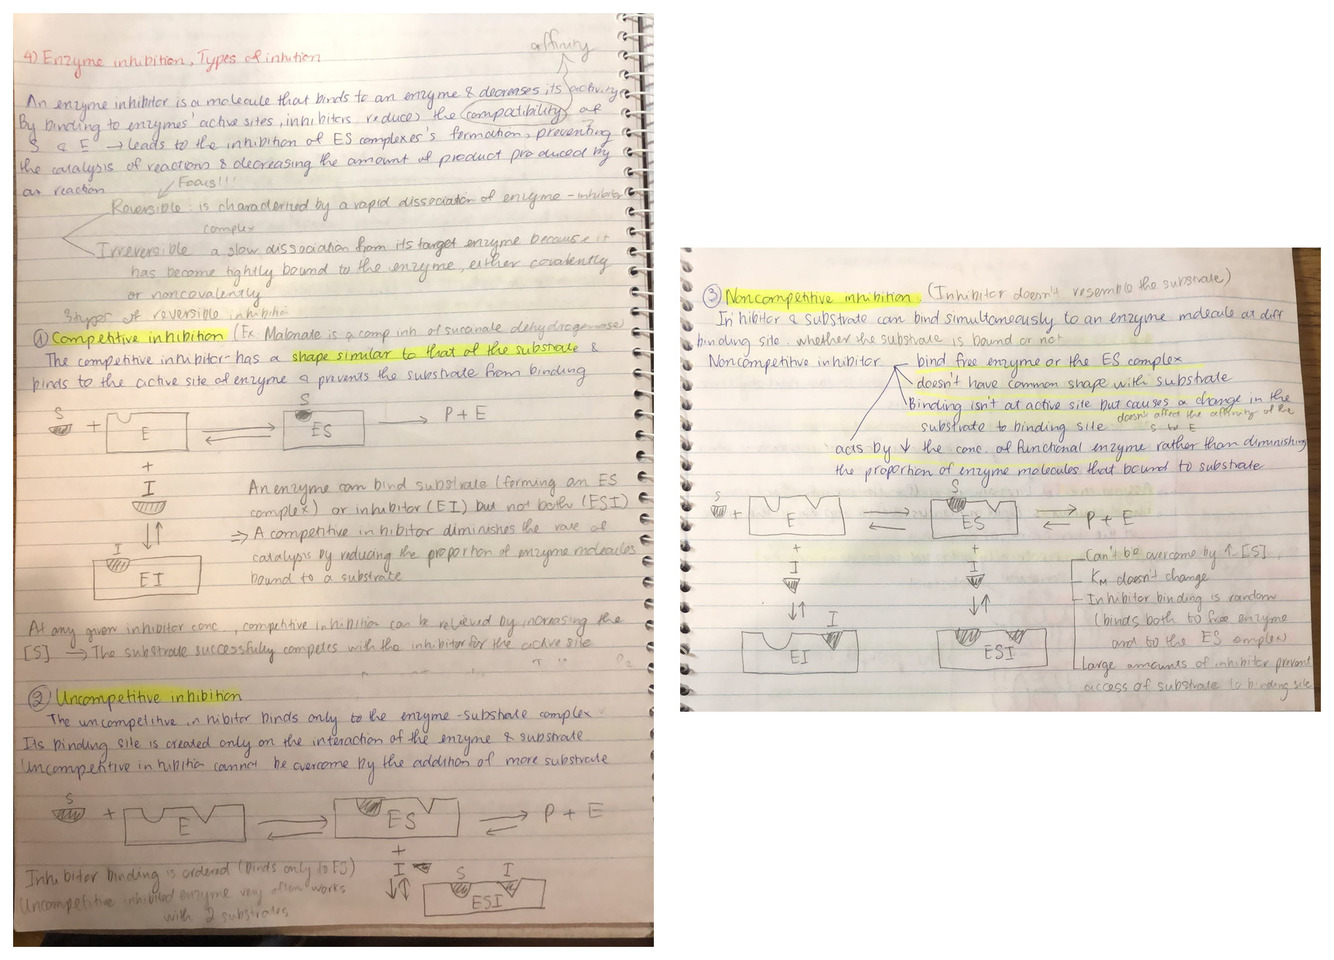 affinity
4) Enzyme inhibition, Types of inhition
An enzyme inhibitor is a molecule that binds to an enzyme & decreases its activity
By binding to enzymes' active sites, inhibitors reduces the compatibility of
S & E → leads to the inhibition of ES complexes's formation, preventing
the catalysis of reactions & decreasing the amount of product produced by
a reaction
Focus!!!
Reversible: is characterized by a rapid dissociation of enzyme - inhibitor
complex
Irreversible a slow dissociation from its target enzyme because it
has become tightly bound to the enzyme, either covalently
or noncovalently
3 types of reversible inhibition
① Competitive inhibition (Ex: Malonate is a comp inh of succinate dehydrogenase)
The competitive inhibitor has a shape similar to that of the substrate &
binds to the active site of enzyme & prevents the substrate from binding
S
S + E ES P + E
+
I
An enzyme can bind substrate (forming an ES
complex) or inhibitor (EI) but not both (ESI)
⇒ A competitive inhibitor diminishes the rate of
catalysis by reducing the proportion of enzyme molecules
bound to a substrate
I
EI
At any given inhibitor conc., competitive inhibition can be relieved by increasing the
[S] → The substrate successfully competes with the inhibitor for the active site
② Uncompetitive inhibition
The uncompetitive inhibitor binds only to the enzyme-substrate complex
Its binding site is created only on the interaction of the enzyme & substrate
Uncompetitive inhibition cannot be overcome by the addition of more substrate
S
+ E ES P + E
+
I S I
ESI
Inhibitor binding is ordered (binds only to ES)
Uncompetitive inhibited enzyme very often works
with 2 substrates
③ Noncompetitive inhibition: (Inhibitor doesn't resemble the substrate)
Inhibitor & substrate can bind simultaneously to an enzyme molecule at diff
binding site. whether the substrate is bound or not
Noncompetitive inhibitor bind free enzyme or the ES complex
doesn't have common shape with substrate
Binding isn't at active site but causes a change in the
substrate to binding site doesn't affect the affinity of the
S to E
acts by ↓ the conc. of functional enzyme rather than diminishing
the proportion of enzyme molecules that bound to substrate
S S
+ E ES P + E
+ +
I I
I
EI ESI
Can't be overcome by ↑ [S]
KM doesn't change
Inhibitor binding is random
(binds both to free enzyme
and to the ES complex)
Large amounts of inhibitor prevent
access of substrate to binding site